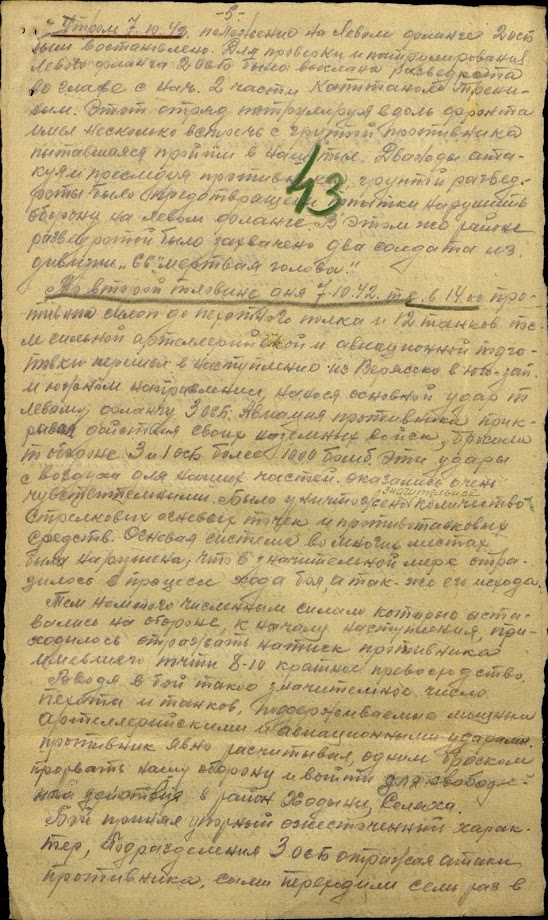 -5-
Утром 7.10.42. положение на левом фланге 2 осб
было востановлено. Для проверки и патрулирования
левого фланга 2 осб была выслана разведрота
во главе с нач. 2 части капитаном
Этот отряд патрулируя вдоль фронта
имел несколько встреч с группой противника
пытавшаяся пройти в наш тыл. Дважды ата-
куя и преследуя противника группой развед-
роты было предотвращено попытки нарушить
оборону на левом фланге. В этом же районе
разведротой было захвачено два солдата из
дивизии "СС мертвая голова."
43
Во второй половине дня 7.10.42. т.е. в 14.00 про-
тивник силой до пехотного полка и 12 танков пос-
ле сильной артиллерийской и авиационной подго-
товки перешел в наступление из Верясско в юго-зап.
и южном направлении, нанося основной удар по
левому флангу 3 осб. Авиация противника прик-
рывая действия своих наземных войск, бросила
по обороне 3 и 1 осб более 1000 бомб. Эти удары
с воздуха для наших частей оказались очень
чувствительными. Было уничтожено значительное количество
стрелковых огневых точек и противотанковых
средств. Огневая система во многих местах
была нарушена, что в значительной мере отра-
зилось в процессе хода боя, а так-же его исхода.
Тем немногочисленным силам которые оста-
вались на обороне, к началу наступления, при-
ходилось отражать натиск противника
имевшего почти 8-10 кратное превосходство.
Вводя в бой такое значительное число
пехоты и танков, поддерживаемые мощными
артиллерийскими и авиационными ударами.
противник явно расчитывал, одним броском
прорвать нашу оборону и выйти для свобод-
ных действия в район Ходыни, Сомаха.
Бой принял упорный ожесточенный харак-
тер, Подразделения 3 осб отражая атаки
противника, сами переходили семь раз в